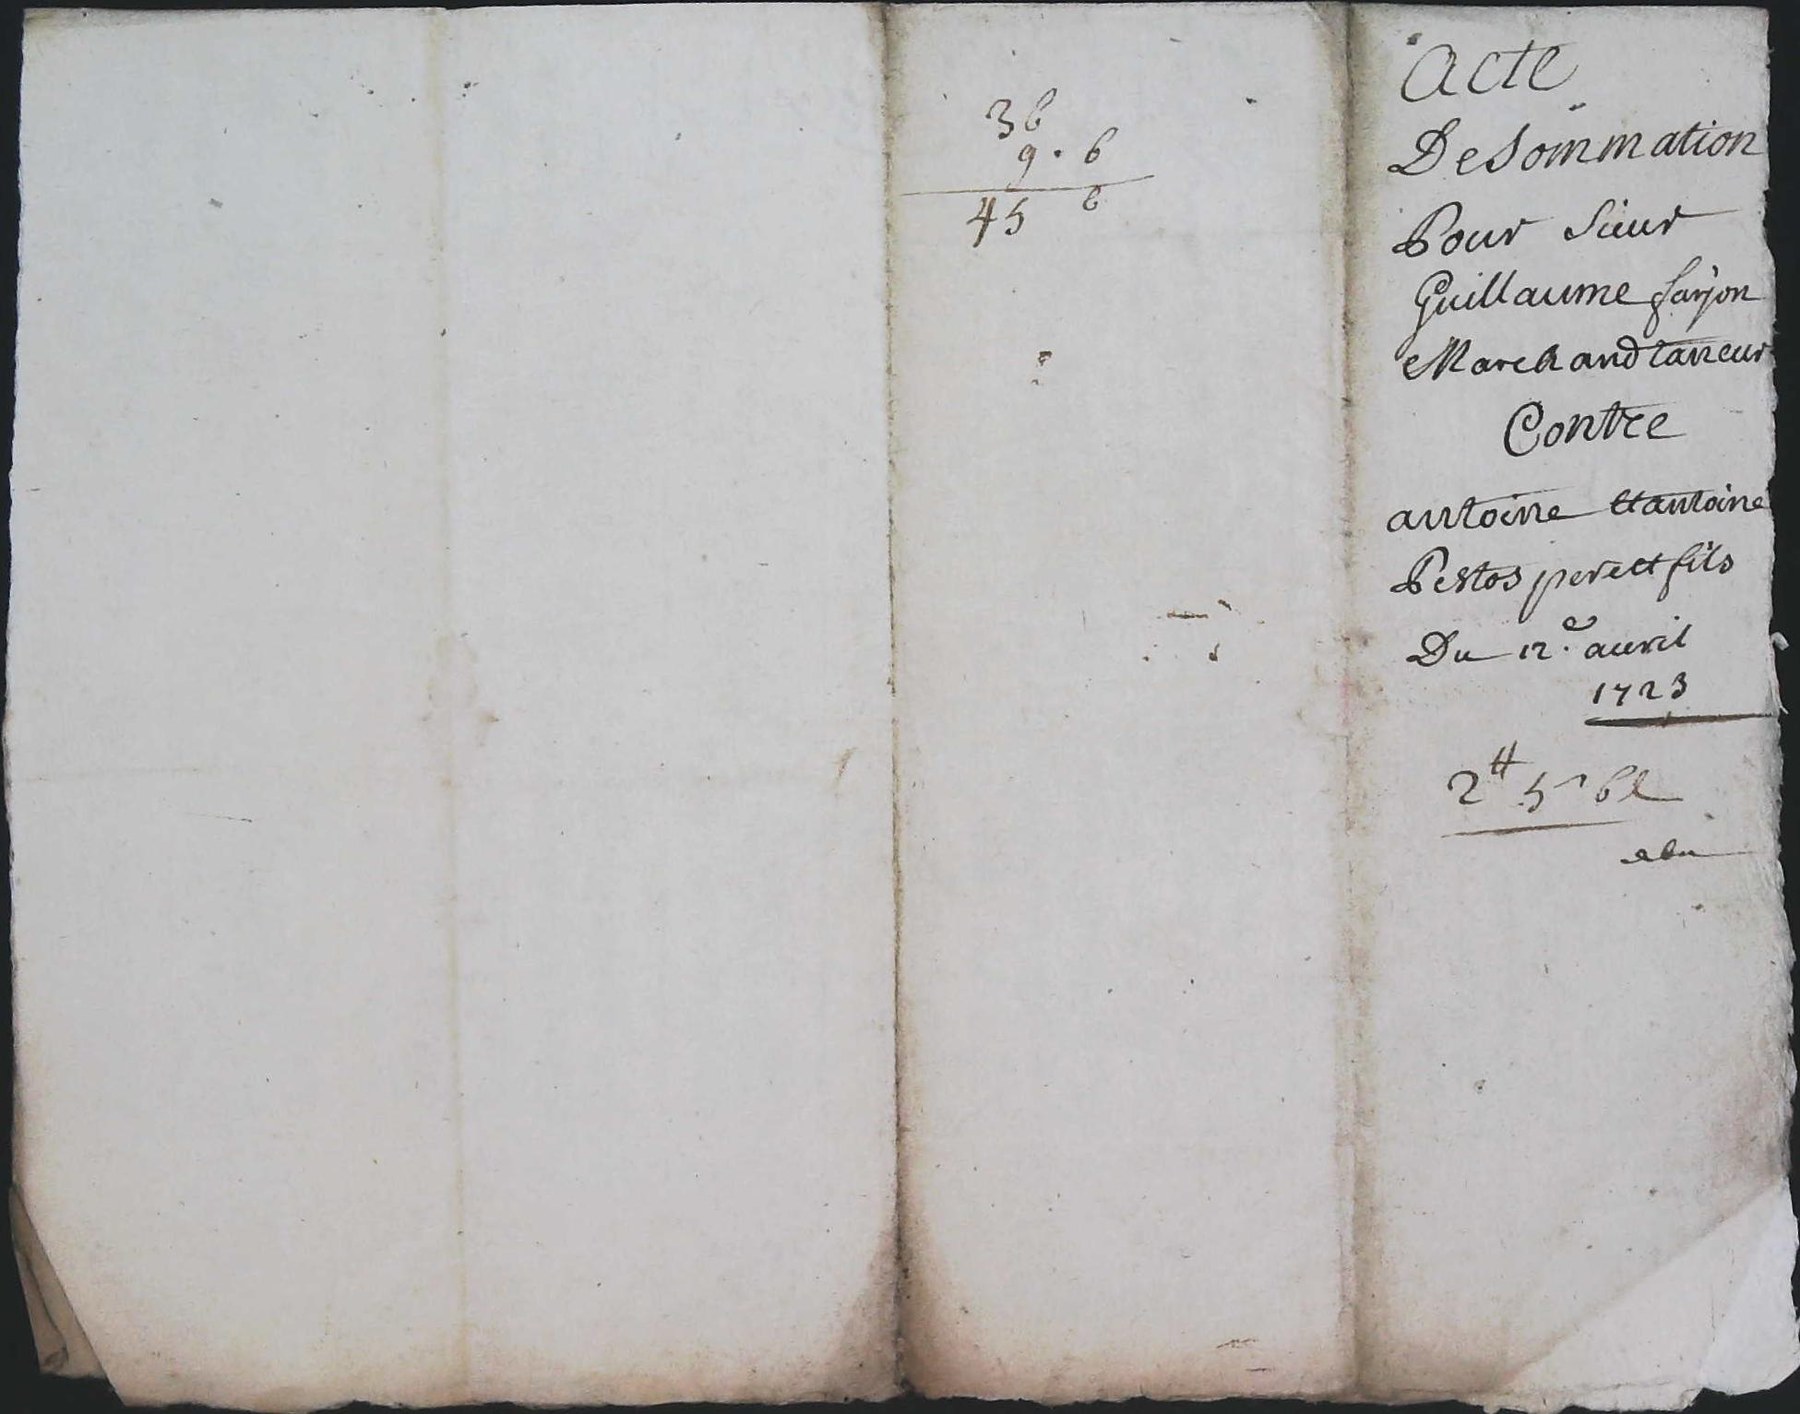 36
9 . 6
45 6
Acte
De Sommation
Pour Sieur
Guillaume farjon
Marchand taneur
Contre
antoine et antoine
Pestos pere et fils
Du 12.e auril
1723
2tt 5s 6d